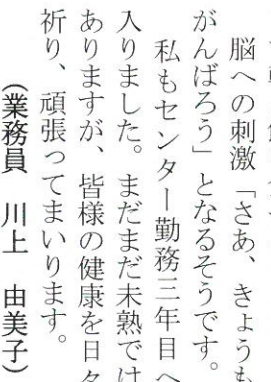 脳への刺激「さあ、きょうも
がんばろう」となるそうです。
私もセンター勤務三年目へ
入りました。まだまだ未熟では
ありますが、皆様の健康を日々
祈り、頑張ってまいります。
(業務員 川上 由美子)